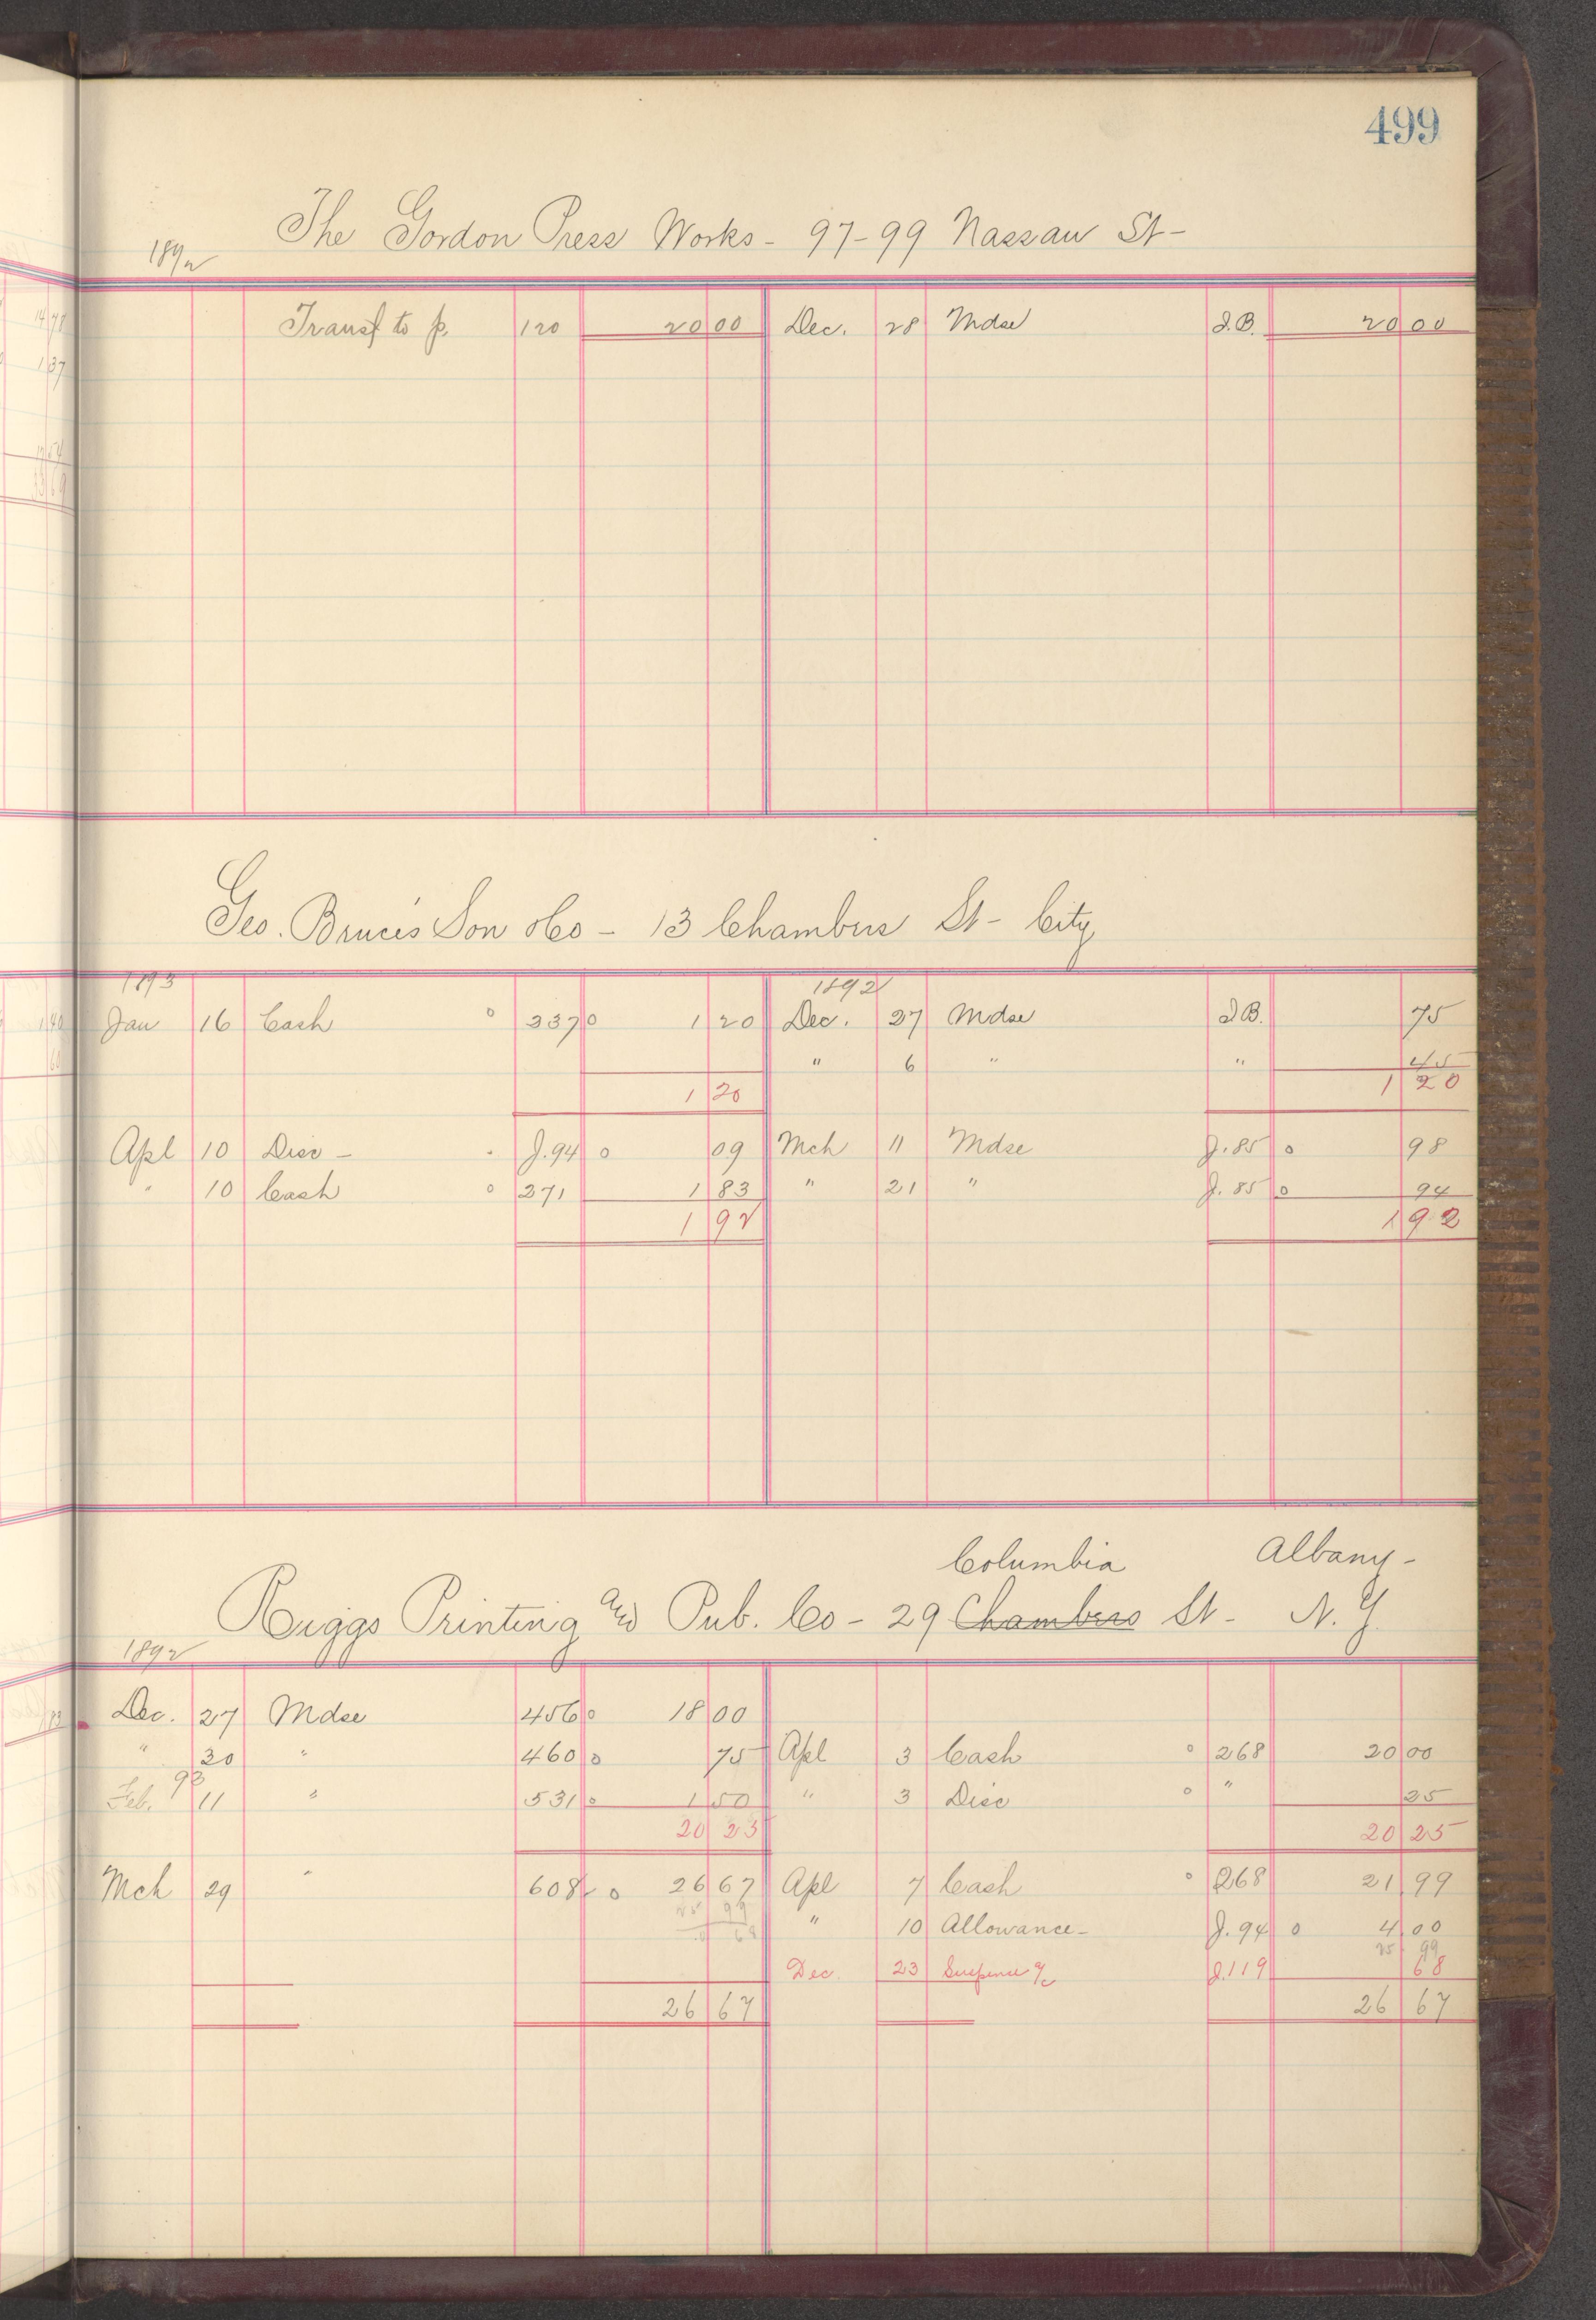 499
The Gordon Press Works - 97-99 Nassau St -
1892
Transf to p. 120 20 00 Dec. 28 Mdse I.B. 20 00
Geo. Bruce's Son & Co - 13 Chambers St - City
1893 1892
Jan 16 Cash o 337 o 1 20 Dec. 27 Mdse I.B. 75
" 6 " " 45
1 20 1 20
Apl 10 Disc - J.94 o 09 Mch 11 Mdse J.85 o 98
" 10 Cash o 271 1 83 " 21 " J.85 o 94
1 92 1 92
Columbia Albany -
Riggs Printing and Pub. Co - 29 Chambers St - N.Y.
1892
Dec. 27 Mdse 456 o 18 00
" 30 " 460 o 75 Apl 3 Cash o 268 20 00
93
Feb. 11 " 531 o 1 50 " 3 Disc o " 25
20 23 20 25
Mch 29 " 608 o 26 67 Apl 7 Cash o 268 21 99
25 99
68 " 10 Allowance - J.94 o 4 00
25 99
Dec 23 Suspence a/c J.119 68
26 67 26 67